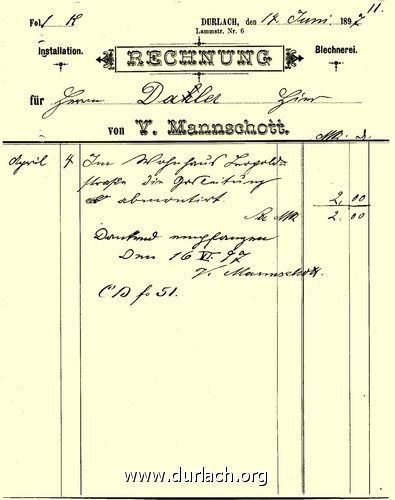 11.
Fol. 1 R DURLACH, den 17. Juni 1897
Lammstr. Nr. 6
Installation. Blechnerei.
RECHNUNG
für Herrn Hier
von V. Mannschott.
Mk. d.
April 4 Im Wohnhaus Leopold-
straße die Gasleitung
abmontirt. 2,00
Sa. Mk 2.00
Dankend empfangen
Den 16 VI. 97
V. Mannschott.
f. 51.
www.durlach.org